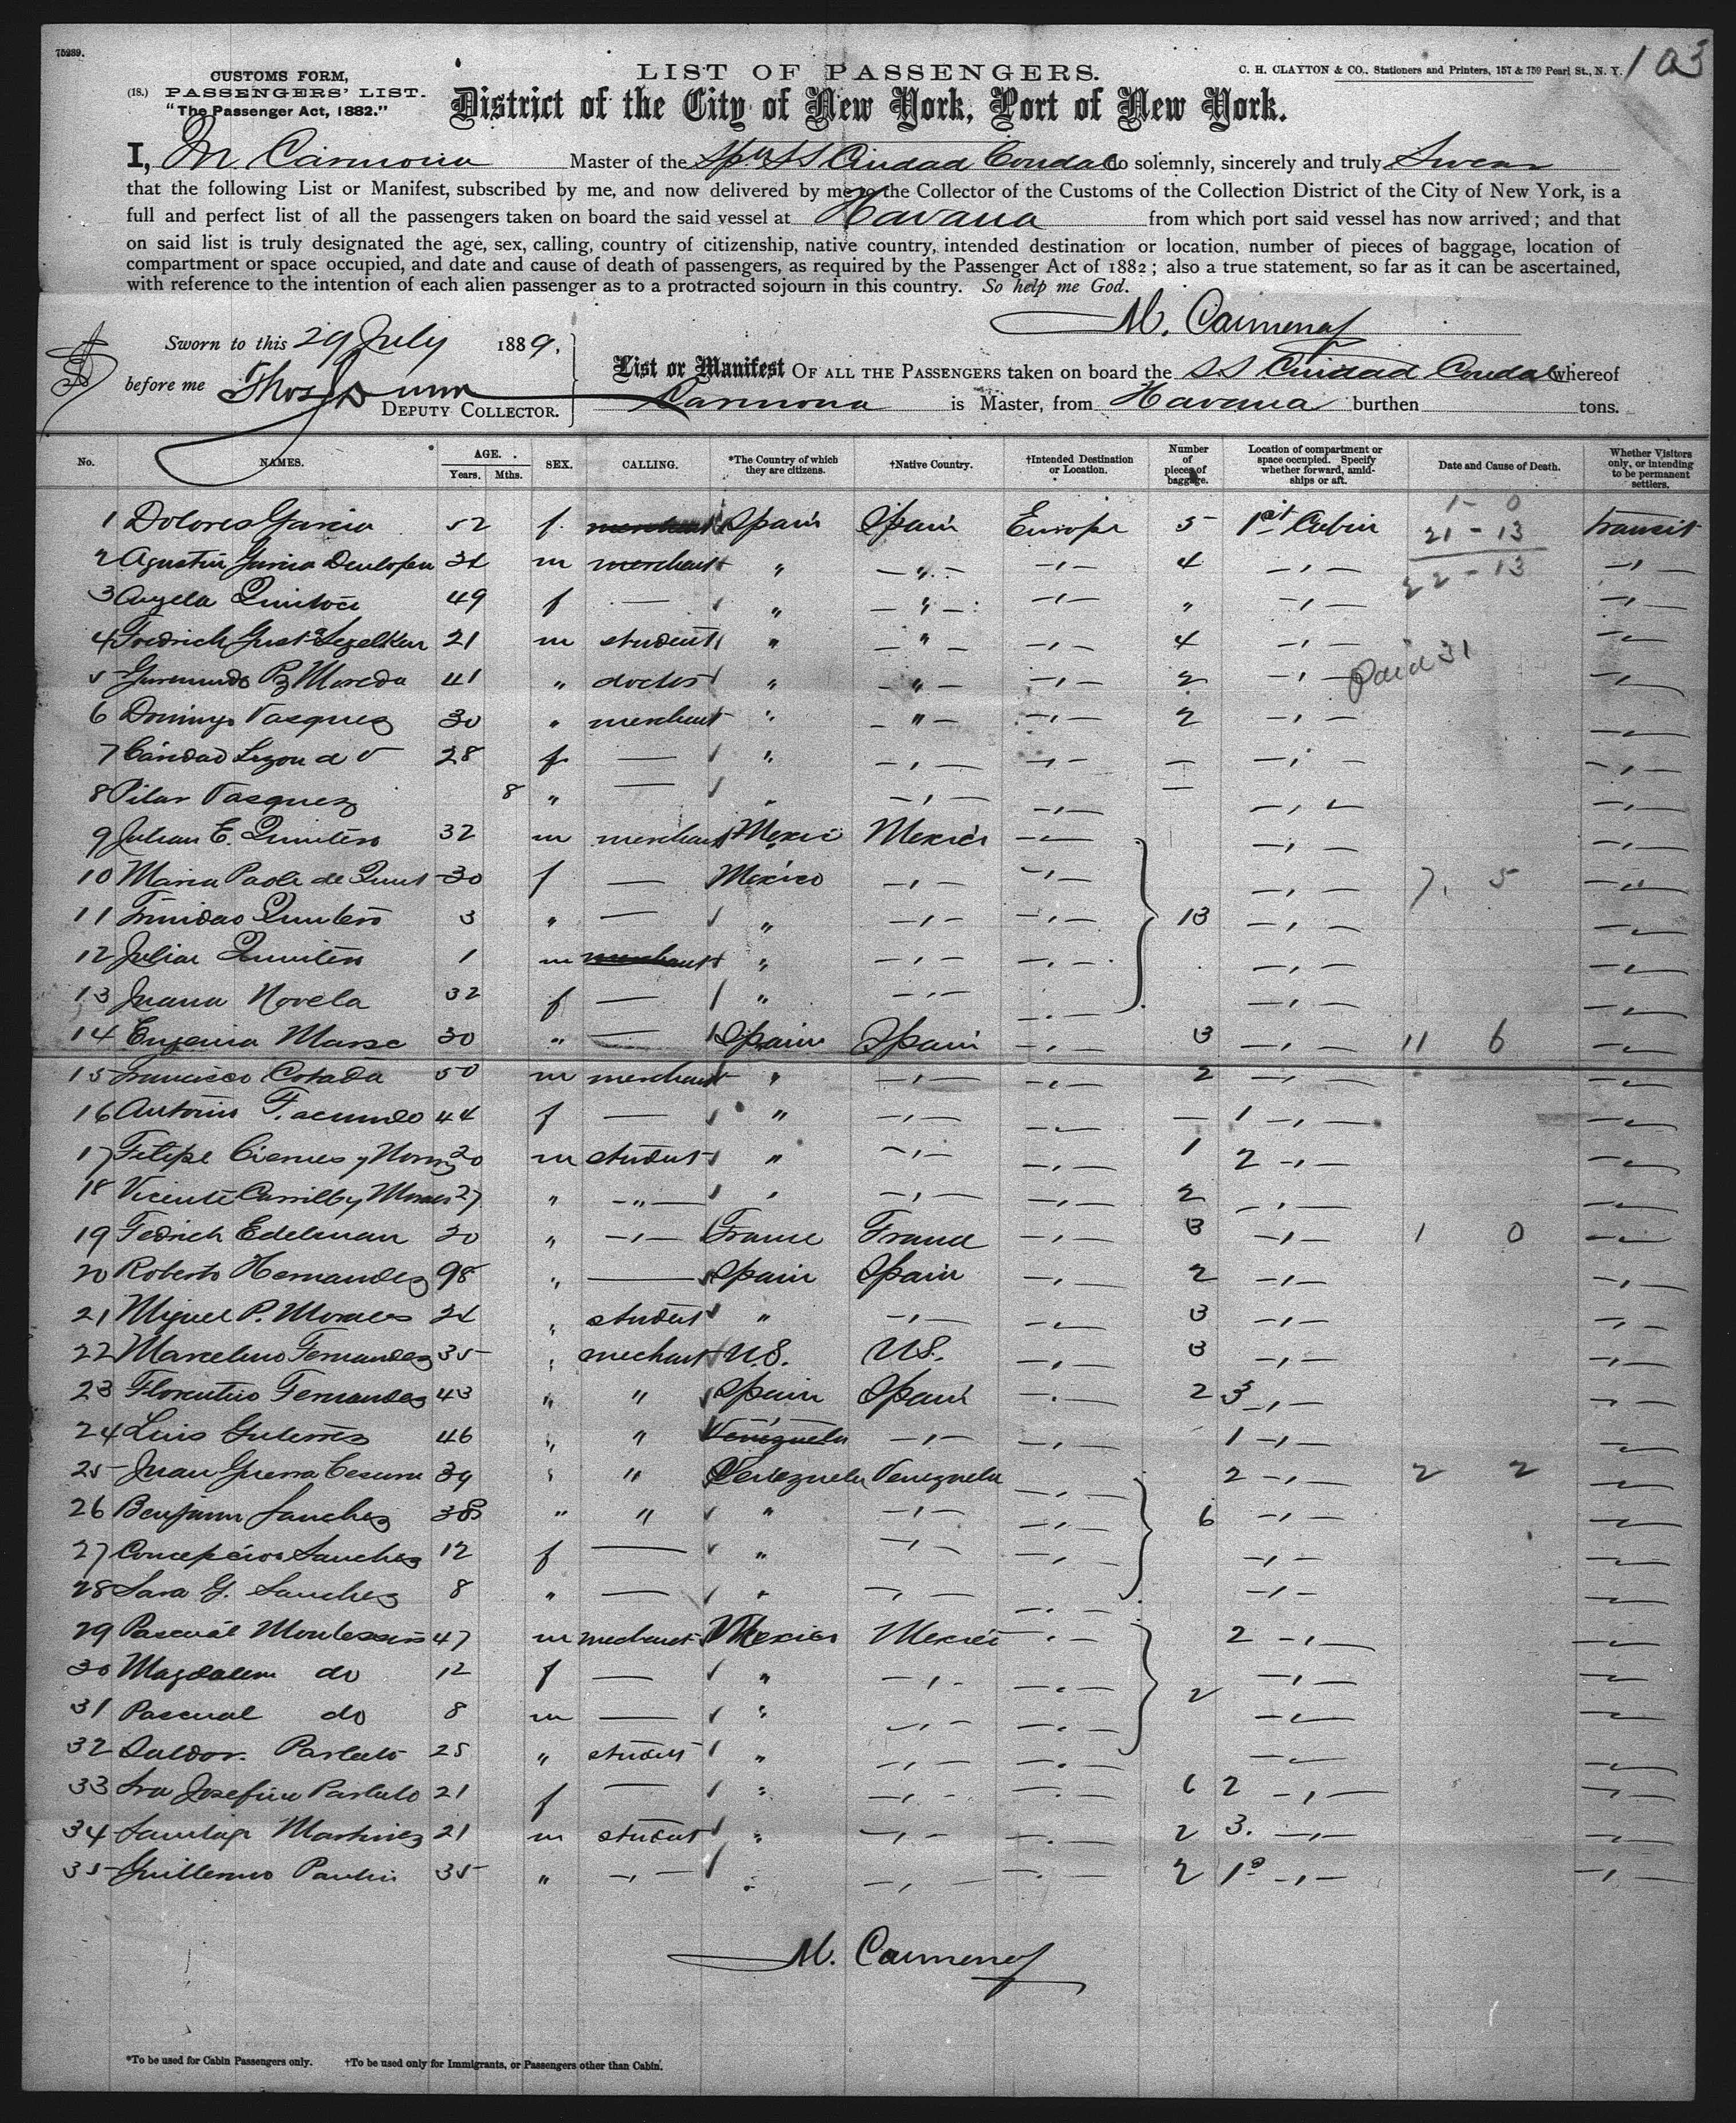 75289.
CUSTOMS FORM,
(18.) PASSENGERS' LIST.
"The Passenger Act, 1882."
LIST OF PASSENGERS.
C. H. CLAYTON & CO., Stationers and Printers, 157 & 159 Pearl St., N. Y.
103
District of the City of New York, Port of New York.
I, M. Carmona Master of the Spa SS Ciudad Condal do solemnly, sincerely and truly Swear
that the following List or Manifest, subscribed by me, and now delivered by me to the Collector of the Customs of the Collection District of the City of New York, is a
full and perfect list of all the passengers taken on board the said vessel at Havana from which port said vessel has now arrived; and that
on said list is truly designated the age, sex, calling, country of citizenship, native country, intended destination or location, number of pieces of baggage, location of
compartment or space occupied, and date and cause of death of passengers, as required by the Passenger Act of 1882; also a true statement, so far as it can be ascertained,
with reference to the intention of each alien passenger as to a protracted sojourn in this country. So help me God.
M. Carmona
Sworn to this 29 July 1889,
before me Thos Dunn
DEPUTY COLLECTOR.
List or Manifest OF ALL THE PASSENGERS taken on board the SS Ciudad Condal whereof
Carmona is Master, from Havana burthen tons.
No. NAMES. AGE. Years. Mths. SEX. CALLING. *The Country of which they are citizens. †Native Country. †Intended Destination or Location. Number of pieces of baggage. Location of compartment or space occupied. Specify whether forward, amidships or aft. Date and Cause of Death. Whether Visitors only, or intending to be permanent settlers.
1 Dolores Garcia 52 f. merchant Spain Spain Europe 5 1st Cabin 1 - 0 21 - 13 transit
2 Agustin Garcia 34 m merchant " " 4 22 - 13
3 Angela 49 f — " " "
4 Fredrich Gust 21 m student " " 4
5 Moreda 41 " doctor " " 2 Paid 31
6 Domingo Vasquez 30 " merchant " " 2
7 Caridad Lezon d V 28 f — " —
8 Pilar Vasquez 8 " — " —
9 Julian E. Quintero 32 m merchant Mexico Mexico
10 Maria Paola de Quint 30 f — Mexico 7. 5
11 Trinidad Quintero 3 " — " 13
12 Julian Quintero 1 m merchant "
13 Juana Novela 32 f — "
14 Eugenia Masse 30 " — Spain Spain 3 11 6
15 Francisco Cotada 50 m merchant " 2
16 Antonio Facundo 44 f — " — 1
17 Felipe 20 m student " 1 2
18 Vicente Carrillo y 27 " " " 2
19 Fedrich Edelman 20 " France France 3 1 0
20 Roberto Hernandez 98 " — Spain Spain 2
21 Miguel P. Morales 24 " student " 3
22 Marcelino Fernandez 35 " merchant U.S. U.S. 3
23 Florentino Fernandez 43 " " Spain Spain 2 3
24 Luis Gutierrez 46 " " Venezuela 1
25 Juan Guerra 39 " " Venezuela Venezuela 2 2 2
26 Benjamin Sanchez 38 " " " 6
27 Concepcion Sanchez 12 f — "
28 Sara G. Sanchez 8 " — "
29 Pascual 47 m merchant Mexico Mexico 2
30 Magdalena do 12 f — " 2
31 Pascual do 8 m — "
32 Saldor. 25 " student "
33 Sra Josefina 21 f — " 6 2
34 Santiago Martinez 21 m student " 2 3.
35 Guillermo 35 " " 2 1a
M. Carmona
*To be used for Cabin Passengers only. †To be used only for Immigrants, or Passengers other than Cabin.